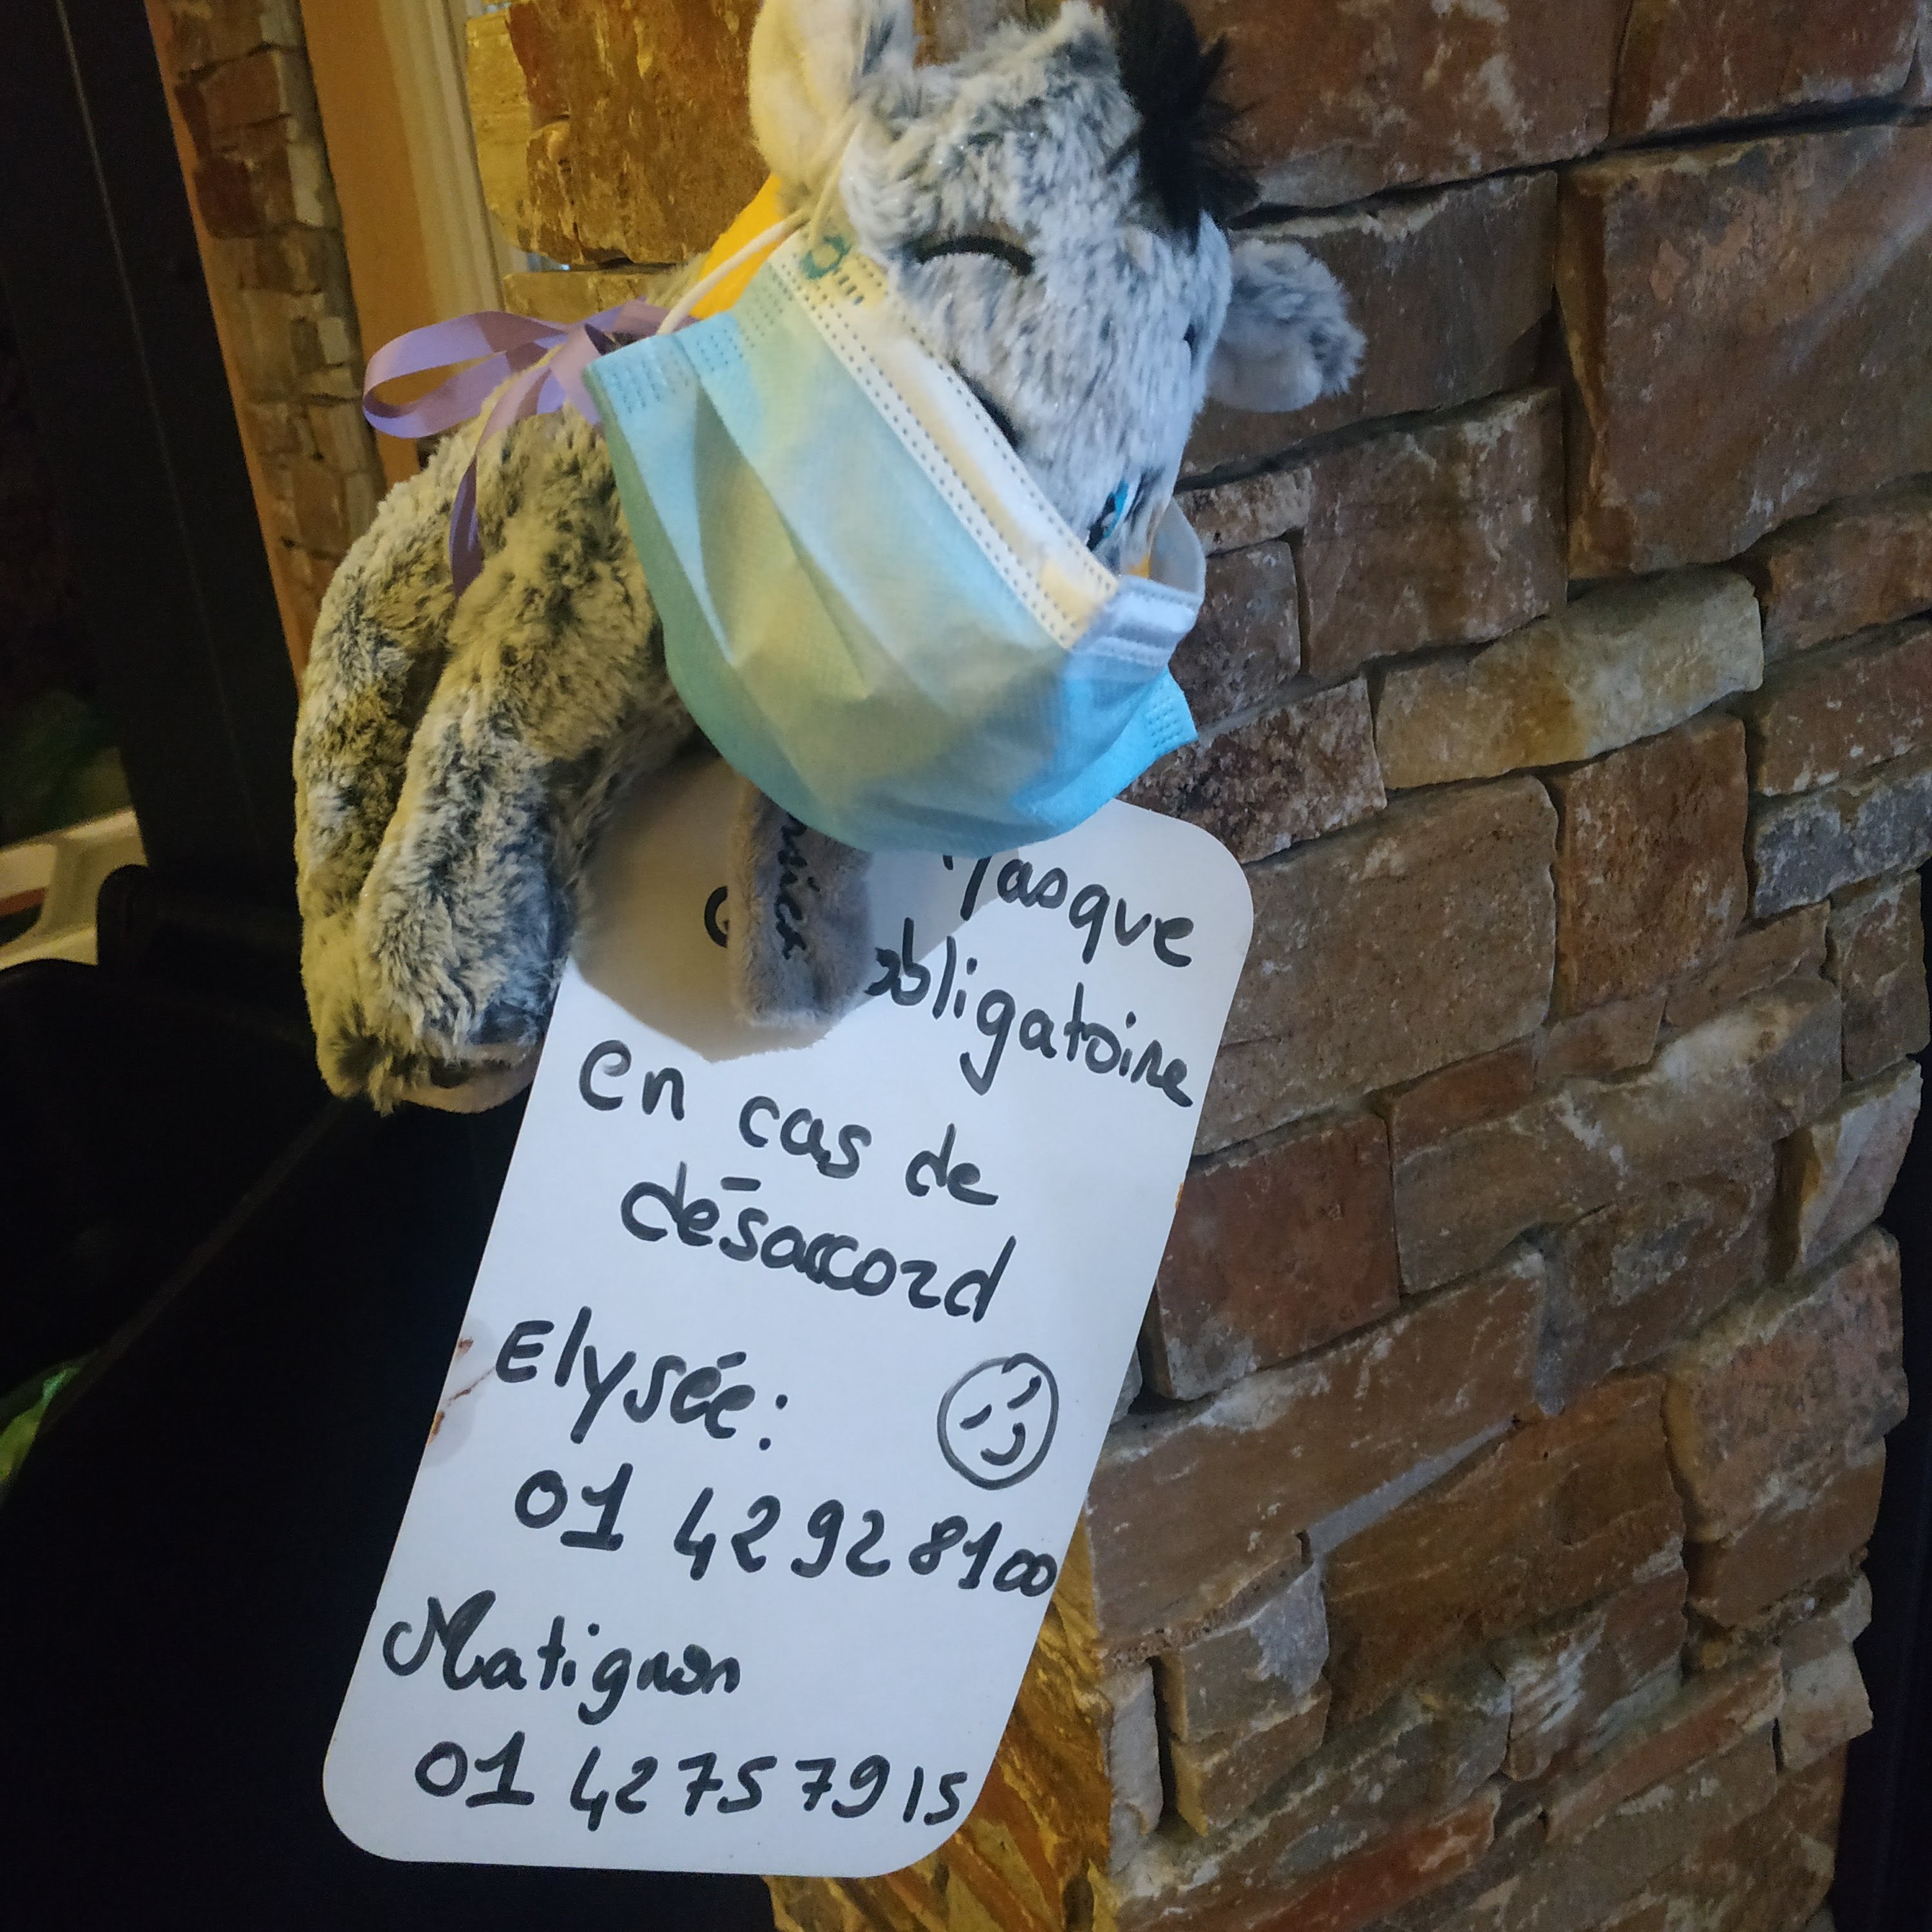 Masque
obligatoire
en cas de
désaccord
Elysée:
01 42 92 8100
Matignon
01 42 75 79 15